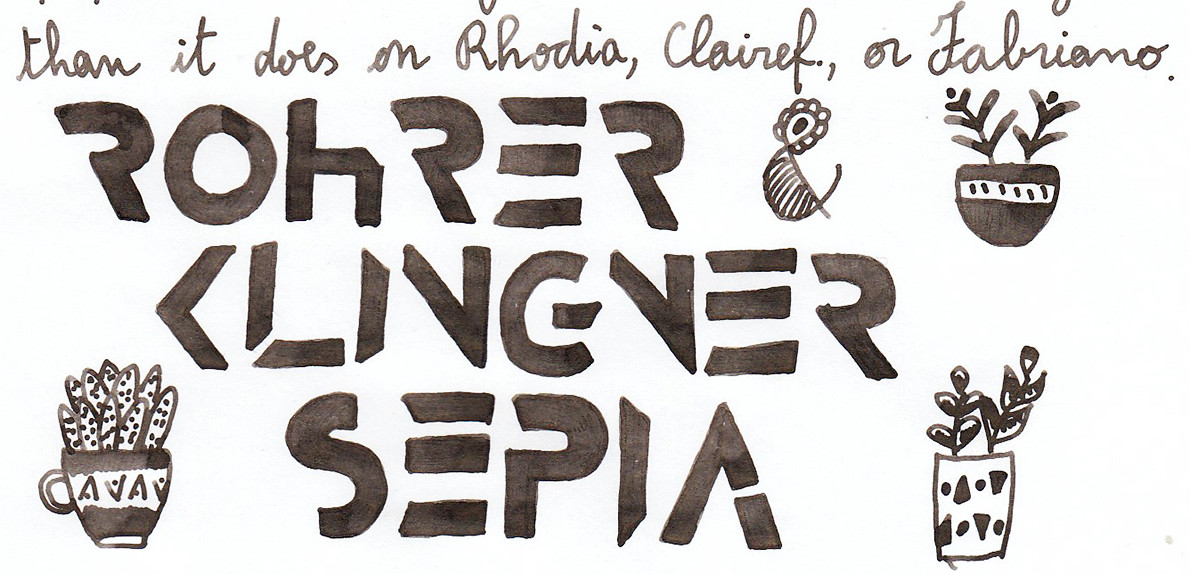 than it does on Rhodia, Clairef., or Fabriano.
ROHRER &
KLINGNER
SEPIA